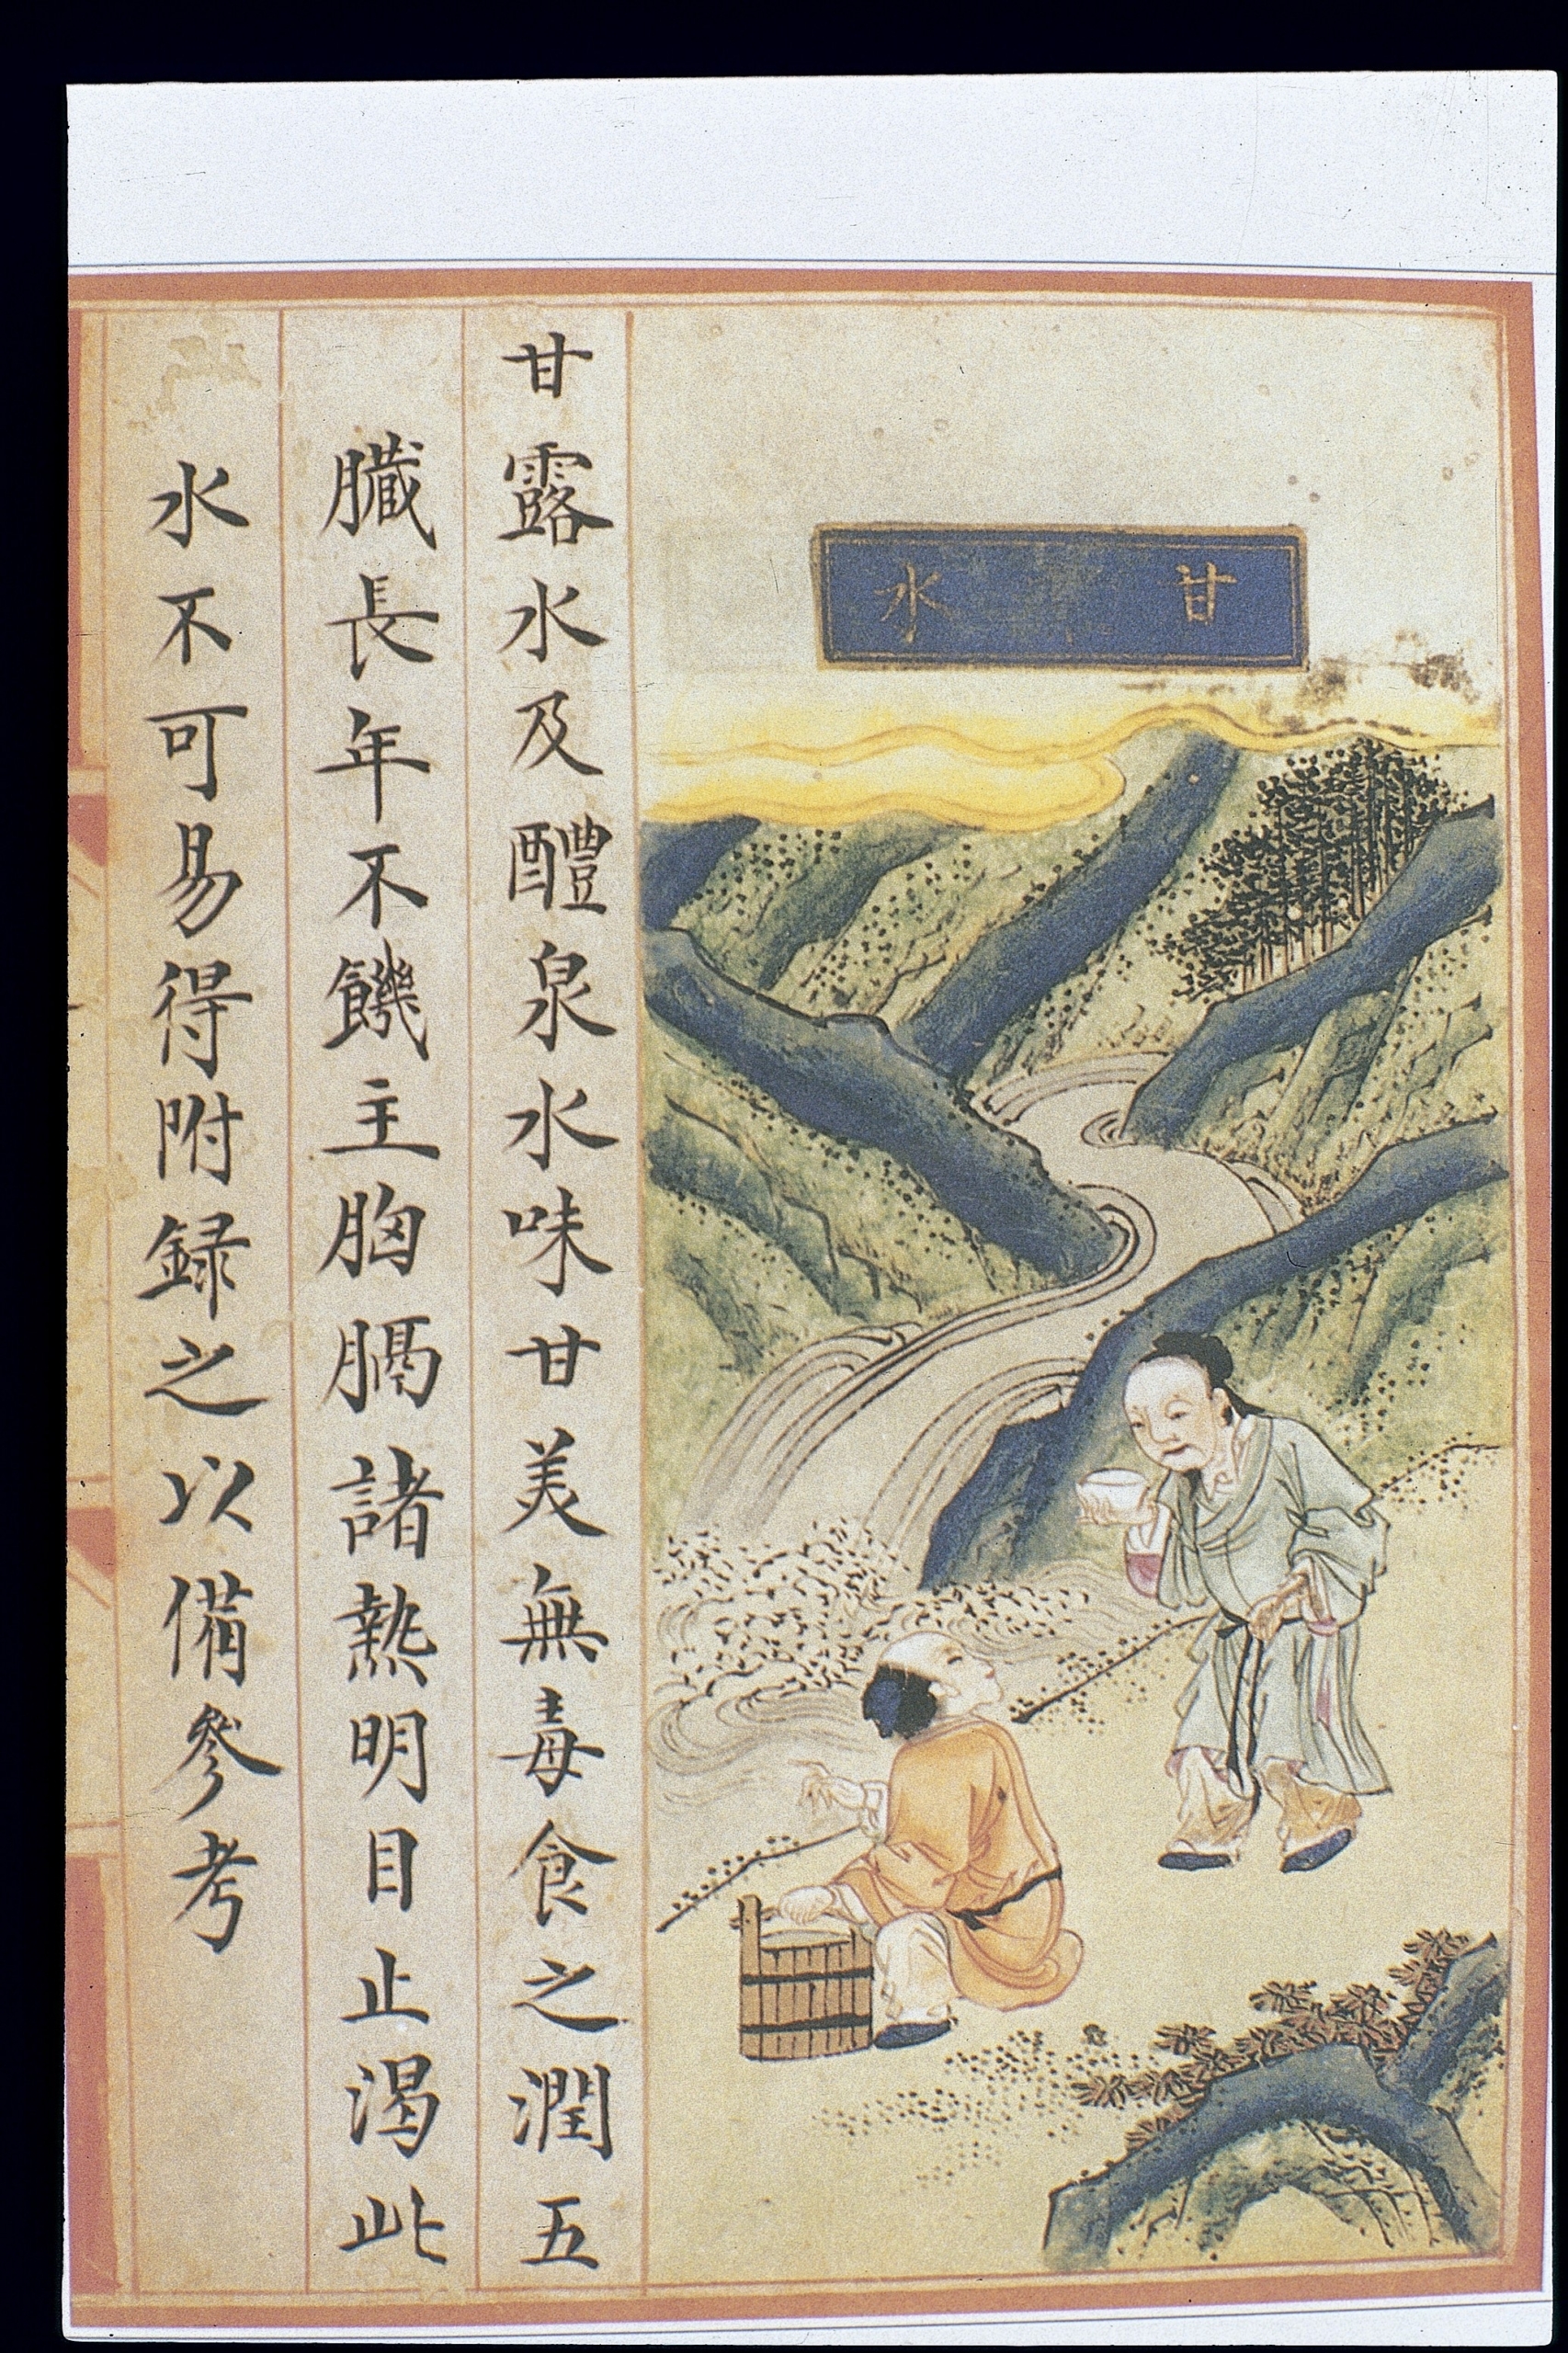 甘水
甘露水及醴泉水味甘美無毒食之潤五
臓長年不饑主胸膈諸熱明目止渴此
水不可易得附録之以備參考